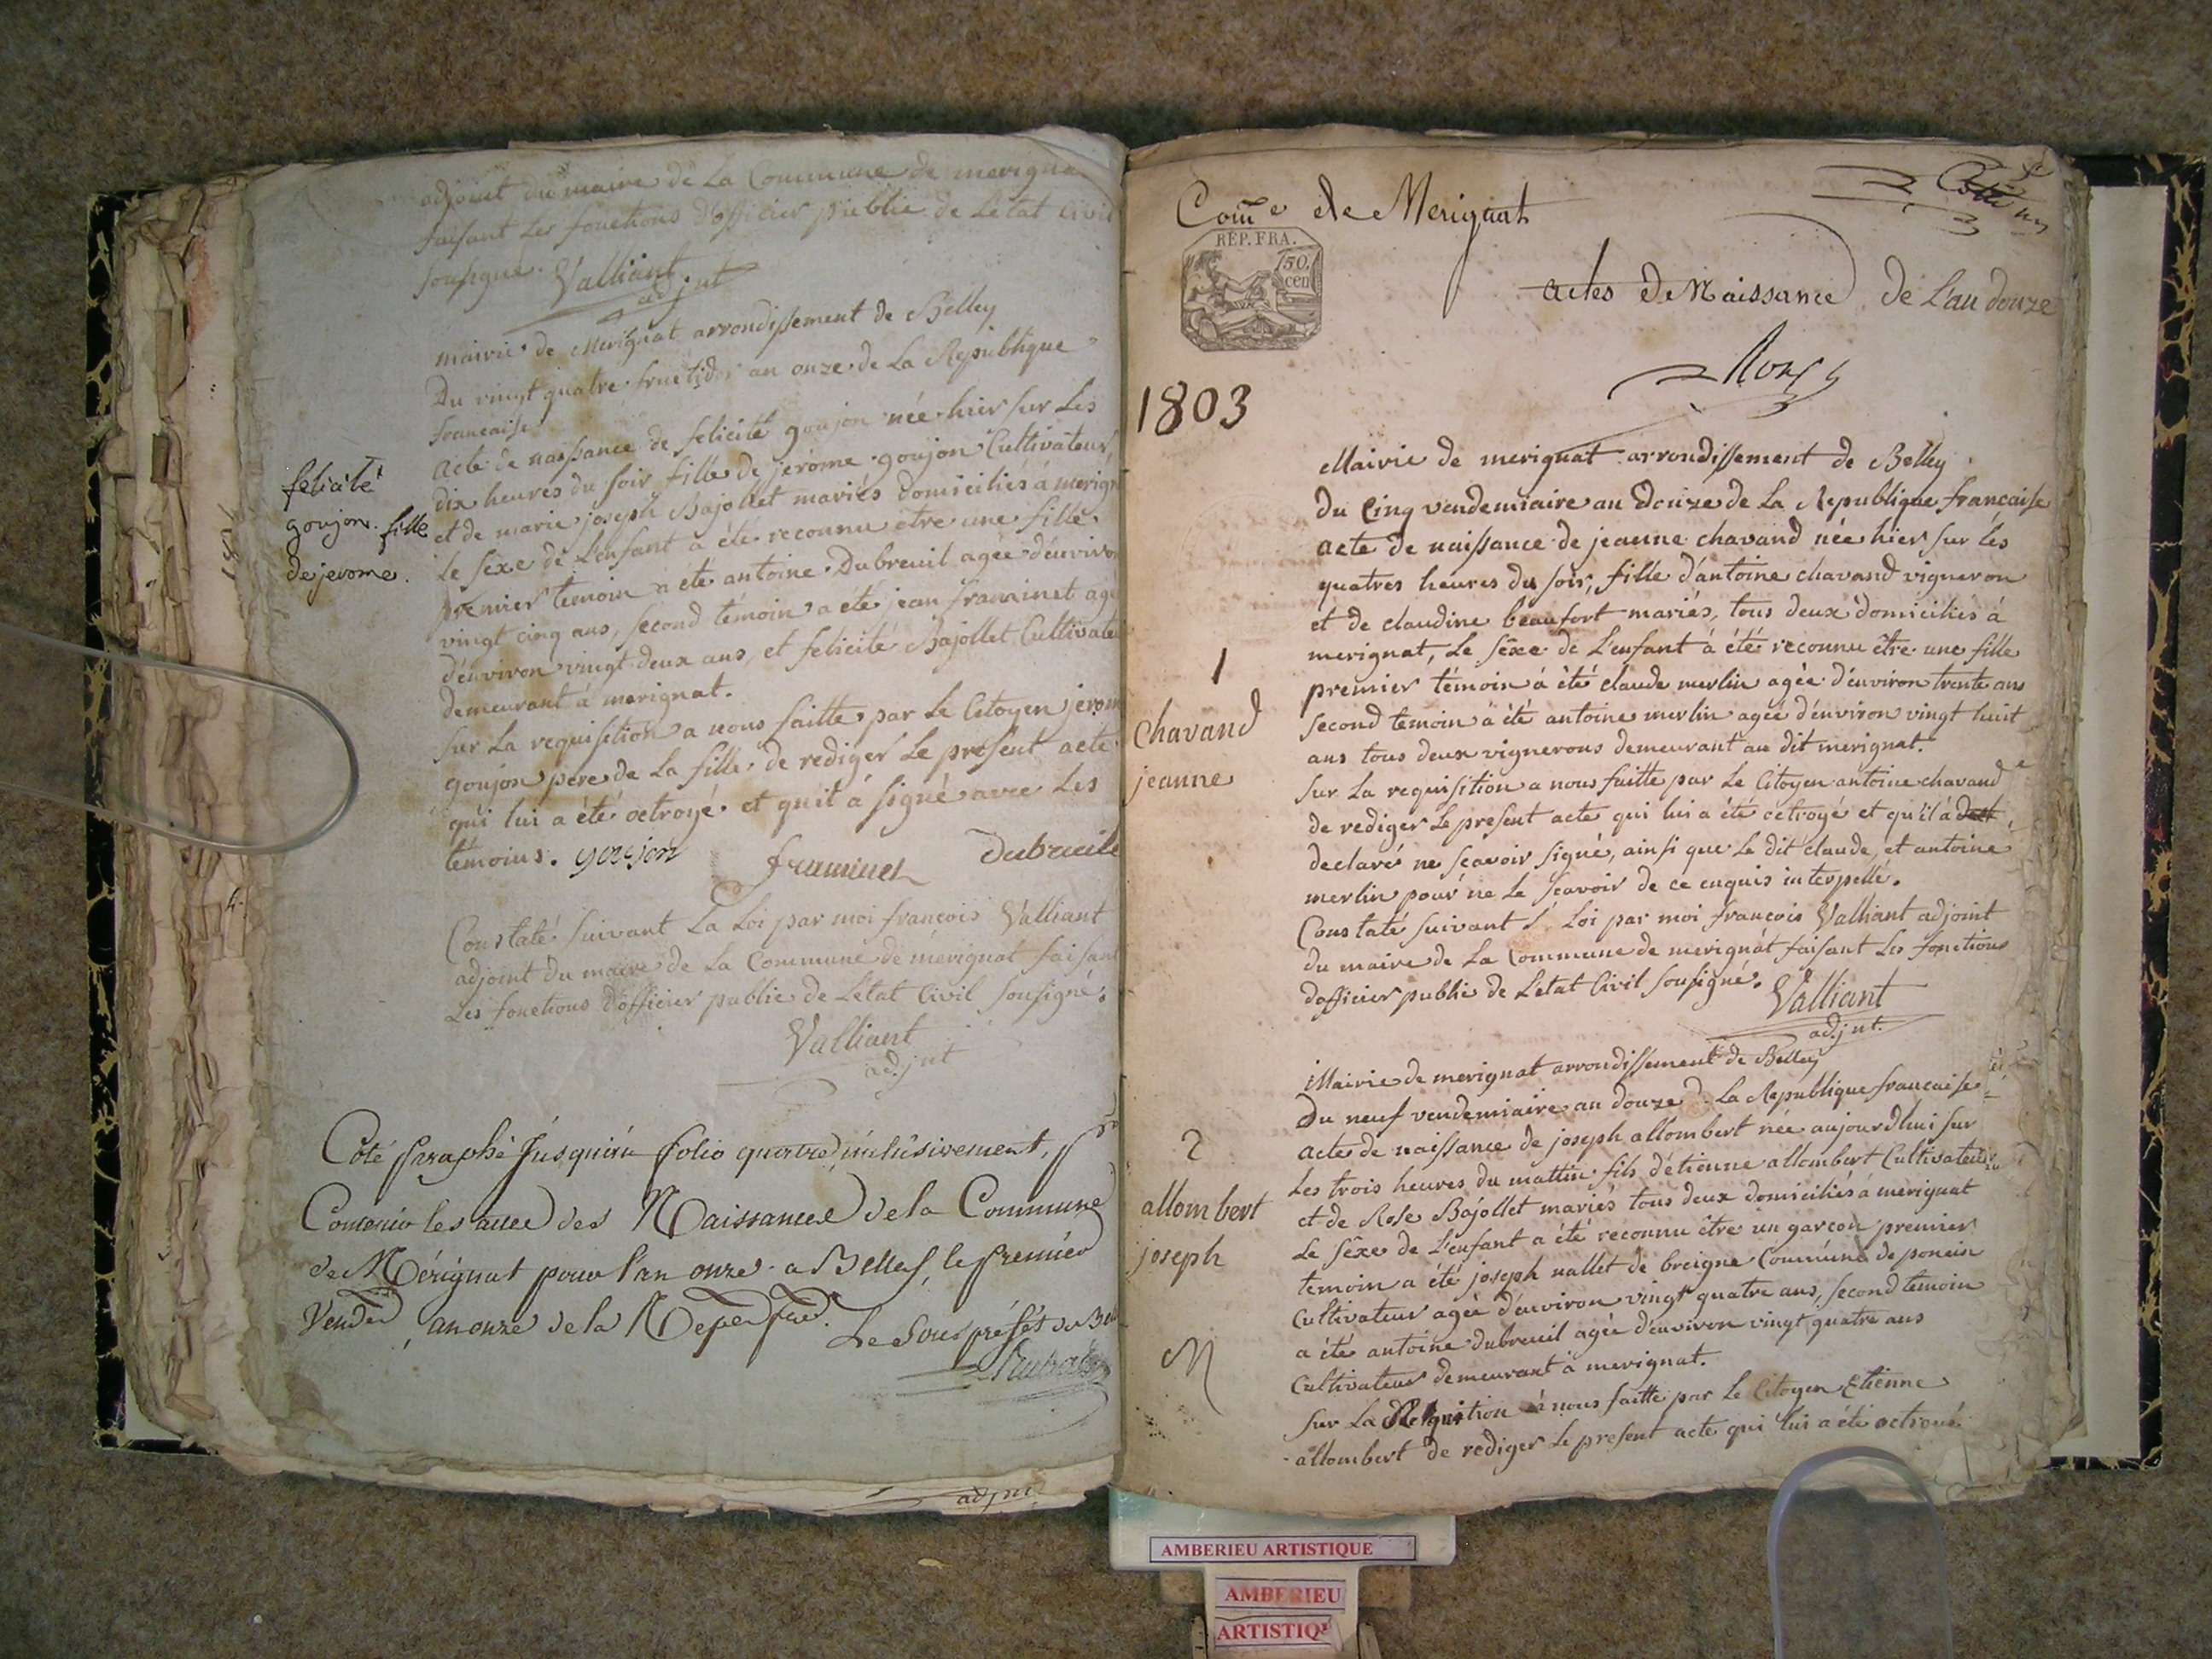 adjoint du maire de La Commune de merigna
faisant Les fonctions d'officier public de Letat Civil
sousigné. Valliant
adjnt
mairie de Merignat arrondissement de Belley
Du vingt quatre fructidor an onze de La Republique
francaise
Acte de naissance de felicité goujon née hier sur Les
dix heures du soir fille de jerôme goujon Cultivateur
et de marie joseph Bajollet mariés domiciliés à merign
Le sexe de L'enfant a été reconnu être une fille
premier temoin a eté antoine Dubreuil agée d'environ
vingt cinq ans, second témoin a eté jean framinet agé
d'environ vingt deux ans, et felicité Bajollet Cultivate
demeurant à merignat.
sur La requisition a nous faitte par Le Citoyen jerom
goujon pere de La fille de rediger Le present acte
qui lui a été octroyé et quil à signé avec Les
temoins. goujon framinet dubreuile
Constaté suivant La Loi par moi francois Valliant
adjoint du maire de La Commune de merignat faisant
Les fonctions d'officier public de Letat Civil sousigné.
Valliant
adjnt
felicité
goujon. fille
de jerome.
Coté Paraphé jusqu'au folio quatre inclusivement,
Contenir les actes des Naissances de la Commune
de Mérignat pour l'an onze. a Belley, le premier
Vendre, an onze de la Repe fse.
Le Sous préfet de Bel
adjnt
Come de Merignat
REP. FRA.
50
cen
Cotté
actes de Naissance de L'an douze
1803
Mairie de merignat arrondissement de Belley
du Cinq vendemiaire an Douze de La Republique francaise
acte de naissance de jeanne chavand née hier sur les
quatres heures du soir, fille d'antoine chavand vigneron
et de claudine beaufort mariés, tous deux domiciliés à
merignat, Le sêxe de L'enfant à été reconnu être une fille
premier témoin à été claude merlin agée d'environ trente ans
second temoin à été antoine merlin ageé d'environ vingt huit
ans tous deux vignerons demeurant au dit merignat.
sur La requisition a nous faitte par Le Citoyen antoine chavand
de rediger Le present acte qui lui a été octroyé et qu'il à
declaré ne scavoir signé, ainsi que Le dit claude, et antoine
merlin pour ne Le scavoir de ce enquis interpellé.
Constaté suivant L Loi par moi francois Valliant adjoint
du maire de La Commune de merignat faisant Les fonctions
dofficier public de Letat Civil sousigné. Valliant
adjnt.
1
chavand
jeanne
Mairie de merignat arrondissement de Belley
Du neuf vendemiaire an douze La Republique francaise
acte de naissance de joseph allombert née aujourdhui sur
Les trois heures du mattin fils d'étienne allombert Cultivateur
et de Rose Bajollet mariés tous deux domiciliés à merignat
Le sêxe de L'enfant a été reconnu être un garcon premier
temoin a été joseph nallet de breigne Commune de poncin
Cultivateur agée d'environ vingt quatre ans, second temoin
a été antoine dubreuil agée d'environ vingt quatre ans
Cultivateur demeurant à merignat.
sur La Requisition à nous faitte par Le Citoyen Etienne
allombert de rediger Le present acte qui lui a été octroié
2
allombert
joseph
M
AMBERIEU ARTISTIQUE
AMBERIEU
ARTISTIQ